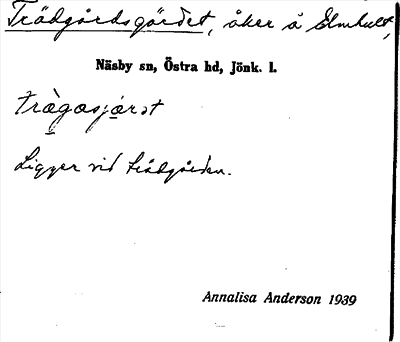 Trädgårdsgärdet, åker å Elmhult,
Näsby sn, Östra hd, Jönk. l.
trägasjärət
Ligger vid trädgården.
Annalisa Anderson 1939